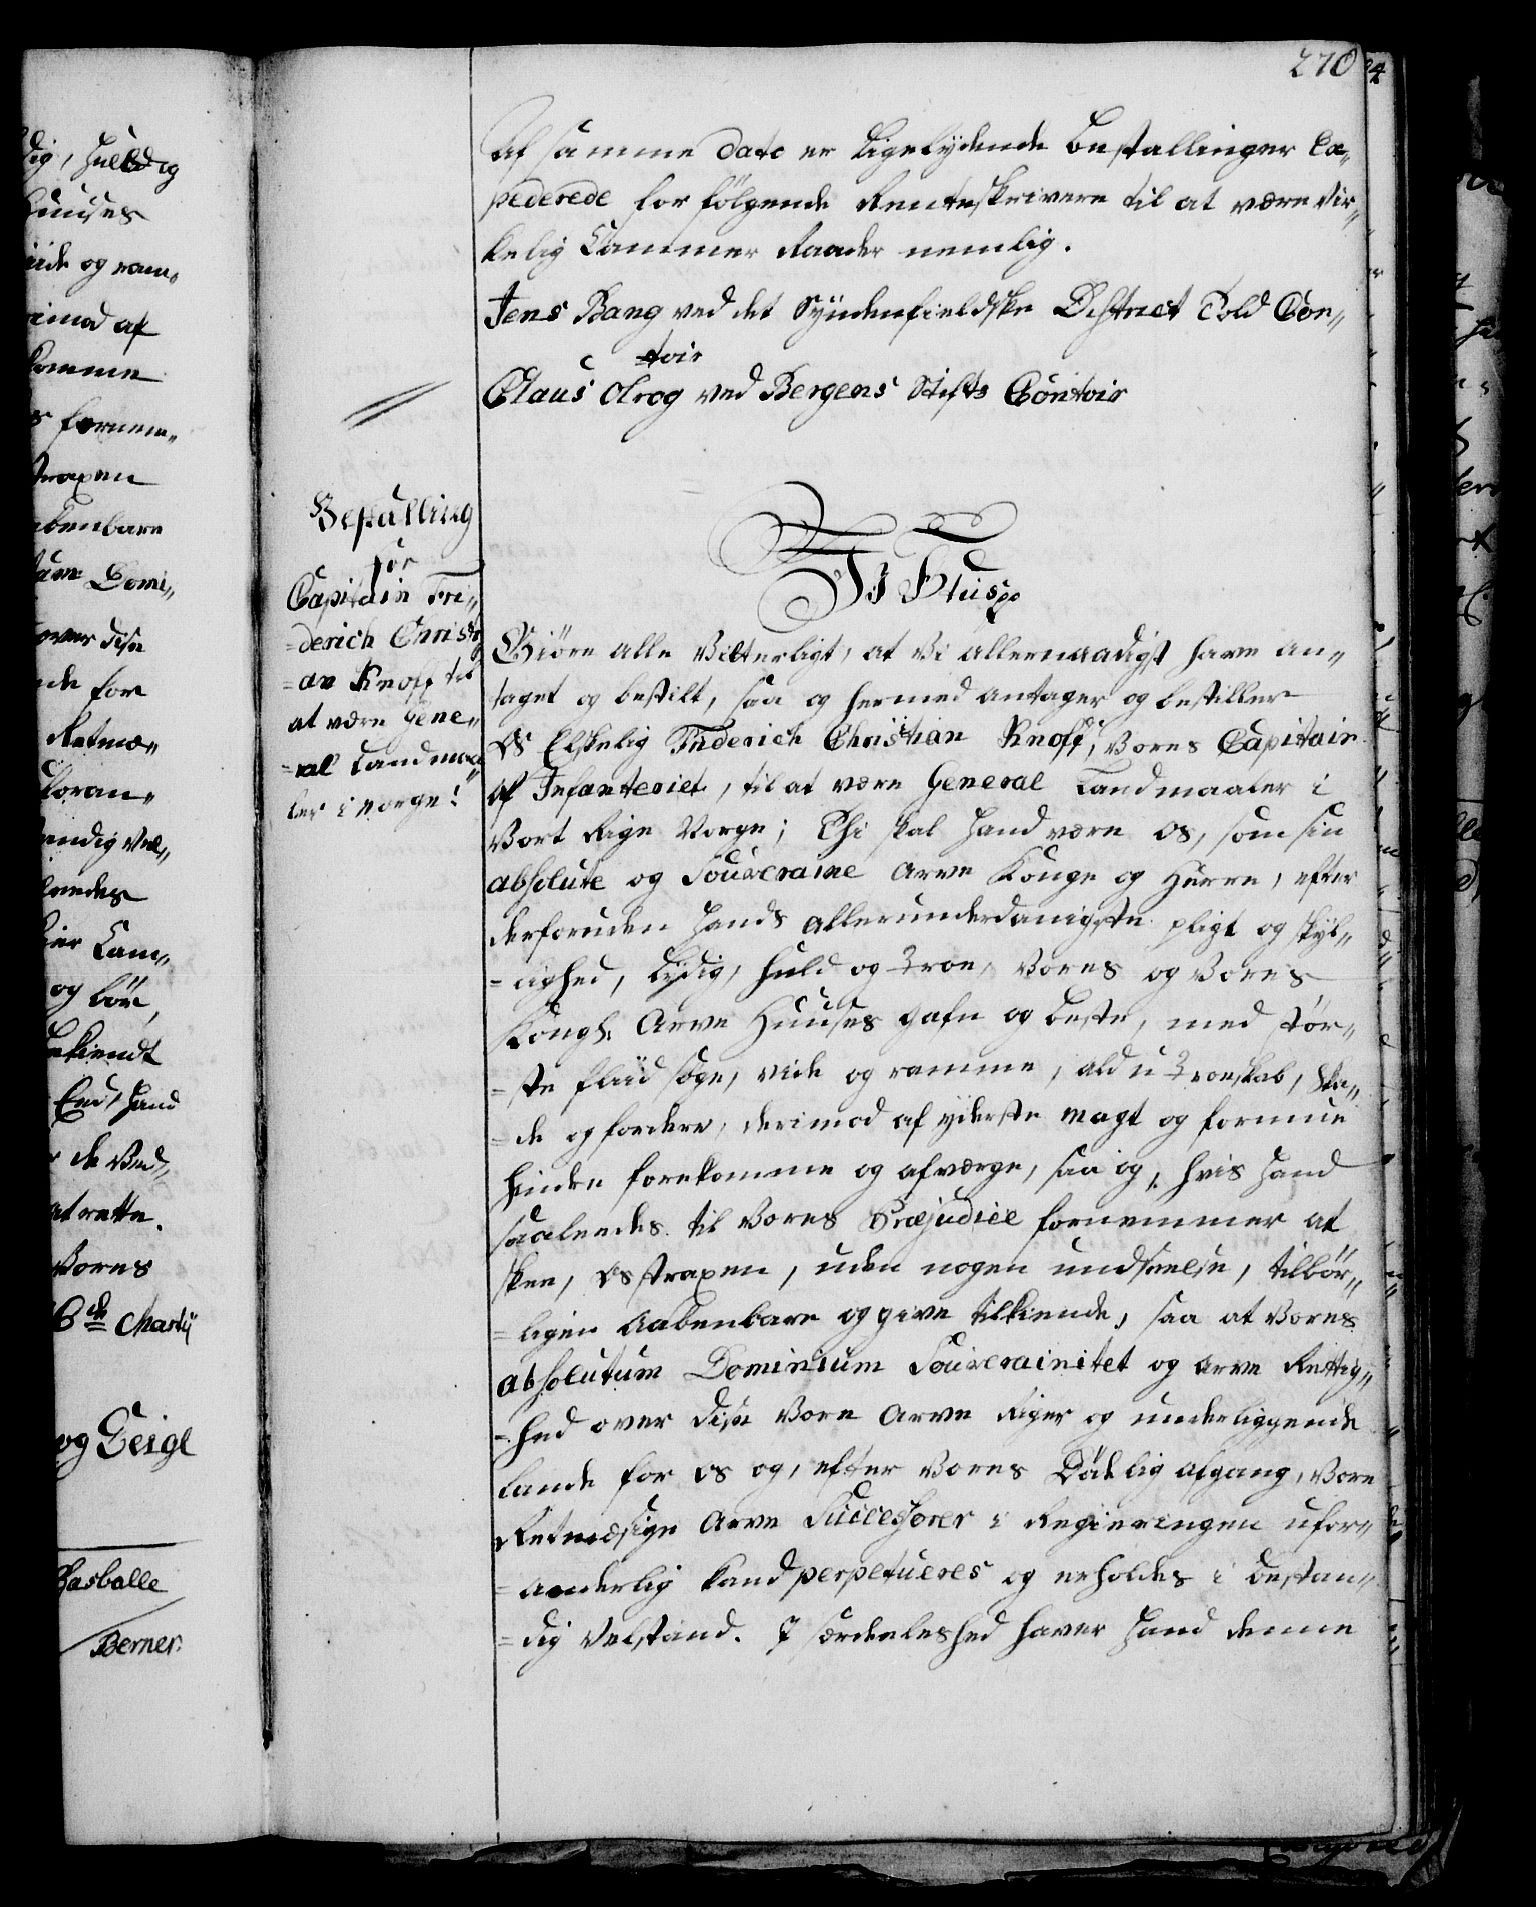 270
Af samme dato er Ligelydende Bestallinger Ex„
pederede for følgende Renteskrivere til at være Vir„
kelig Cammer Raader nemlig.
Jens Bang ved det Syndenfieldske District Told Con„
toir
Claus Olrog ved Bergens Stifts Contoir
Bestalling
for
Capitain Fri„
=derich Christi
=an Knoff til
at være Gene„
=ral Landmaa„
ler i Norge.
Titulus
Giøre alle Vitterligt, at Vi allernaadigst have an„
taget og bestilt, saa og hermed antager og bestiller
Os Elskelig Friderich Christian Knoff, Vores Capitain
af Infanteriet, til at være General Landmaaler i
Vort Rige Norge; Thi skal hand være os, som sin
absolute og Souveraine Arve Konge og Herre, efter
derforuden hands allerunderdanigste pligt og skyl„
=dighed, lydig, huld og troe, Vores og Vores
Kongl. Arve Huuses gafn og beste, med stør„
=ste fliid søge, vide og ramme, ald u-troeskab, ska„
=de og fordere, derimod af yderste magt og formue
hindre forekomme og afværge, saa og, hvis hand
saaleedes til Vores Præjudice fornemmer at
skee, os straxen, uden nogen undseelse, tilbør„
=ligen aabenbare og give tilkiende, saa at Vores
absolutum Dominium Souverainitet og Arve Rettig„
=hed over disse Vore Arve Riger og underliggende
lande for os og, efter Vores Dødelig afgang, Vore
Retmæssige Arve Successorer i Regieringen ufor„
=anderlig kand perpetueres og erholdes i bestan„
=dig Velstand. I særdeleshed haver hand denne